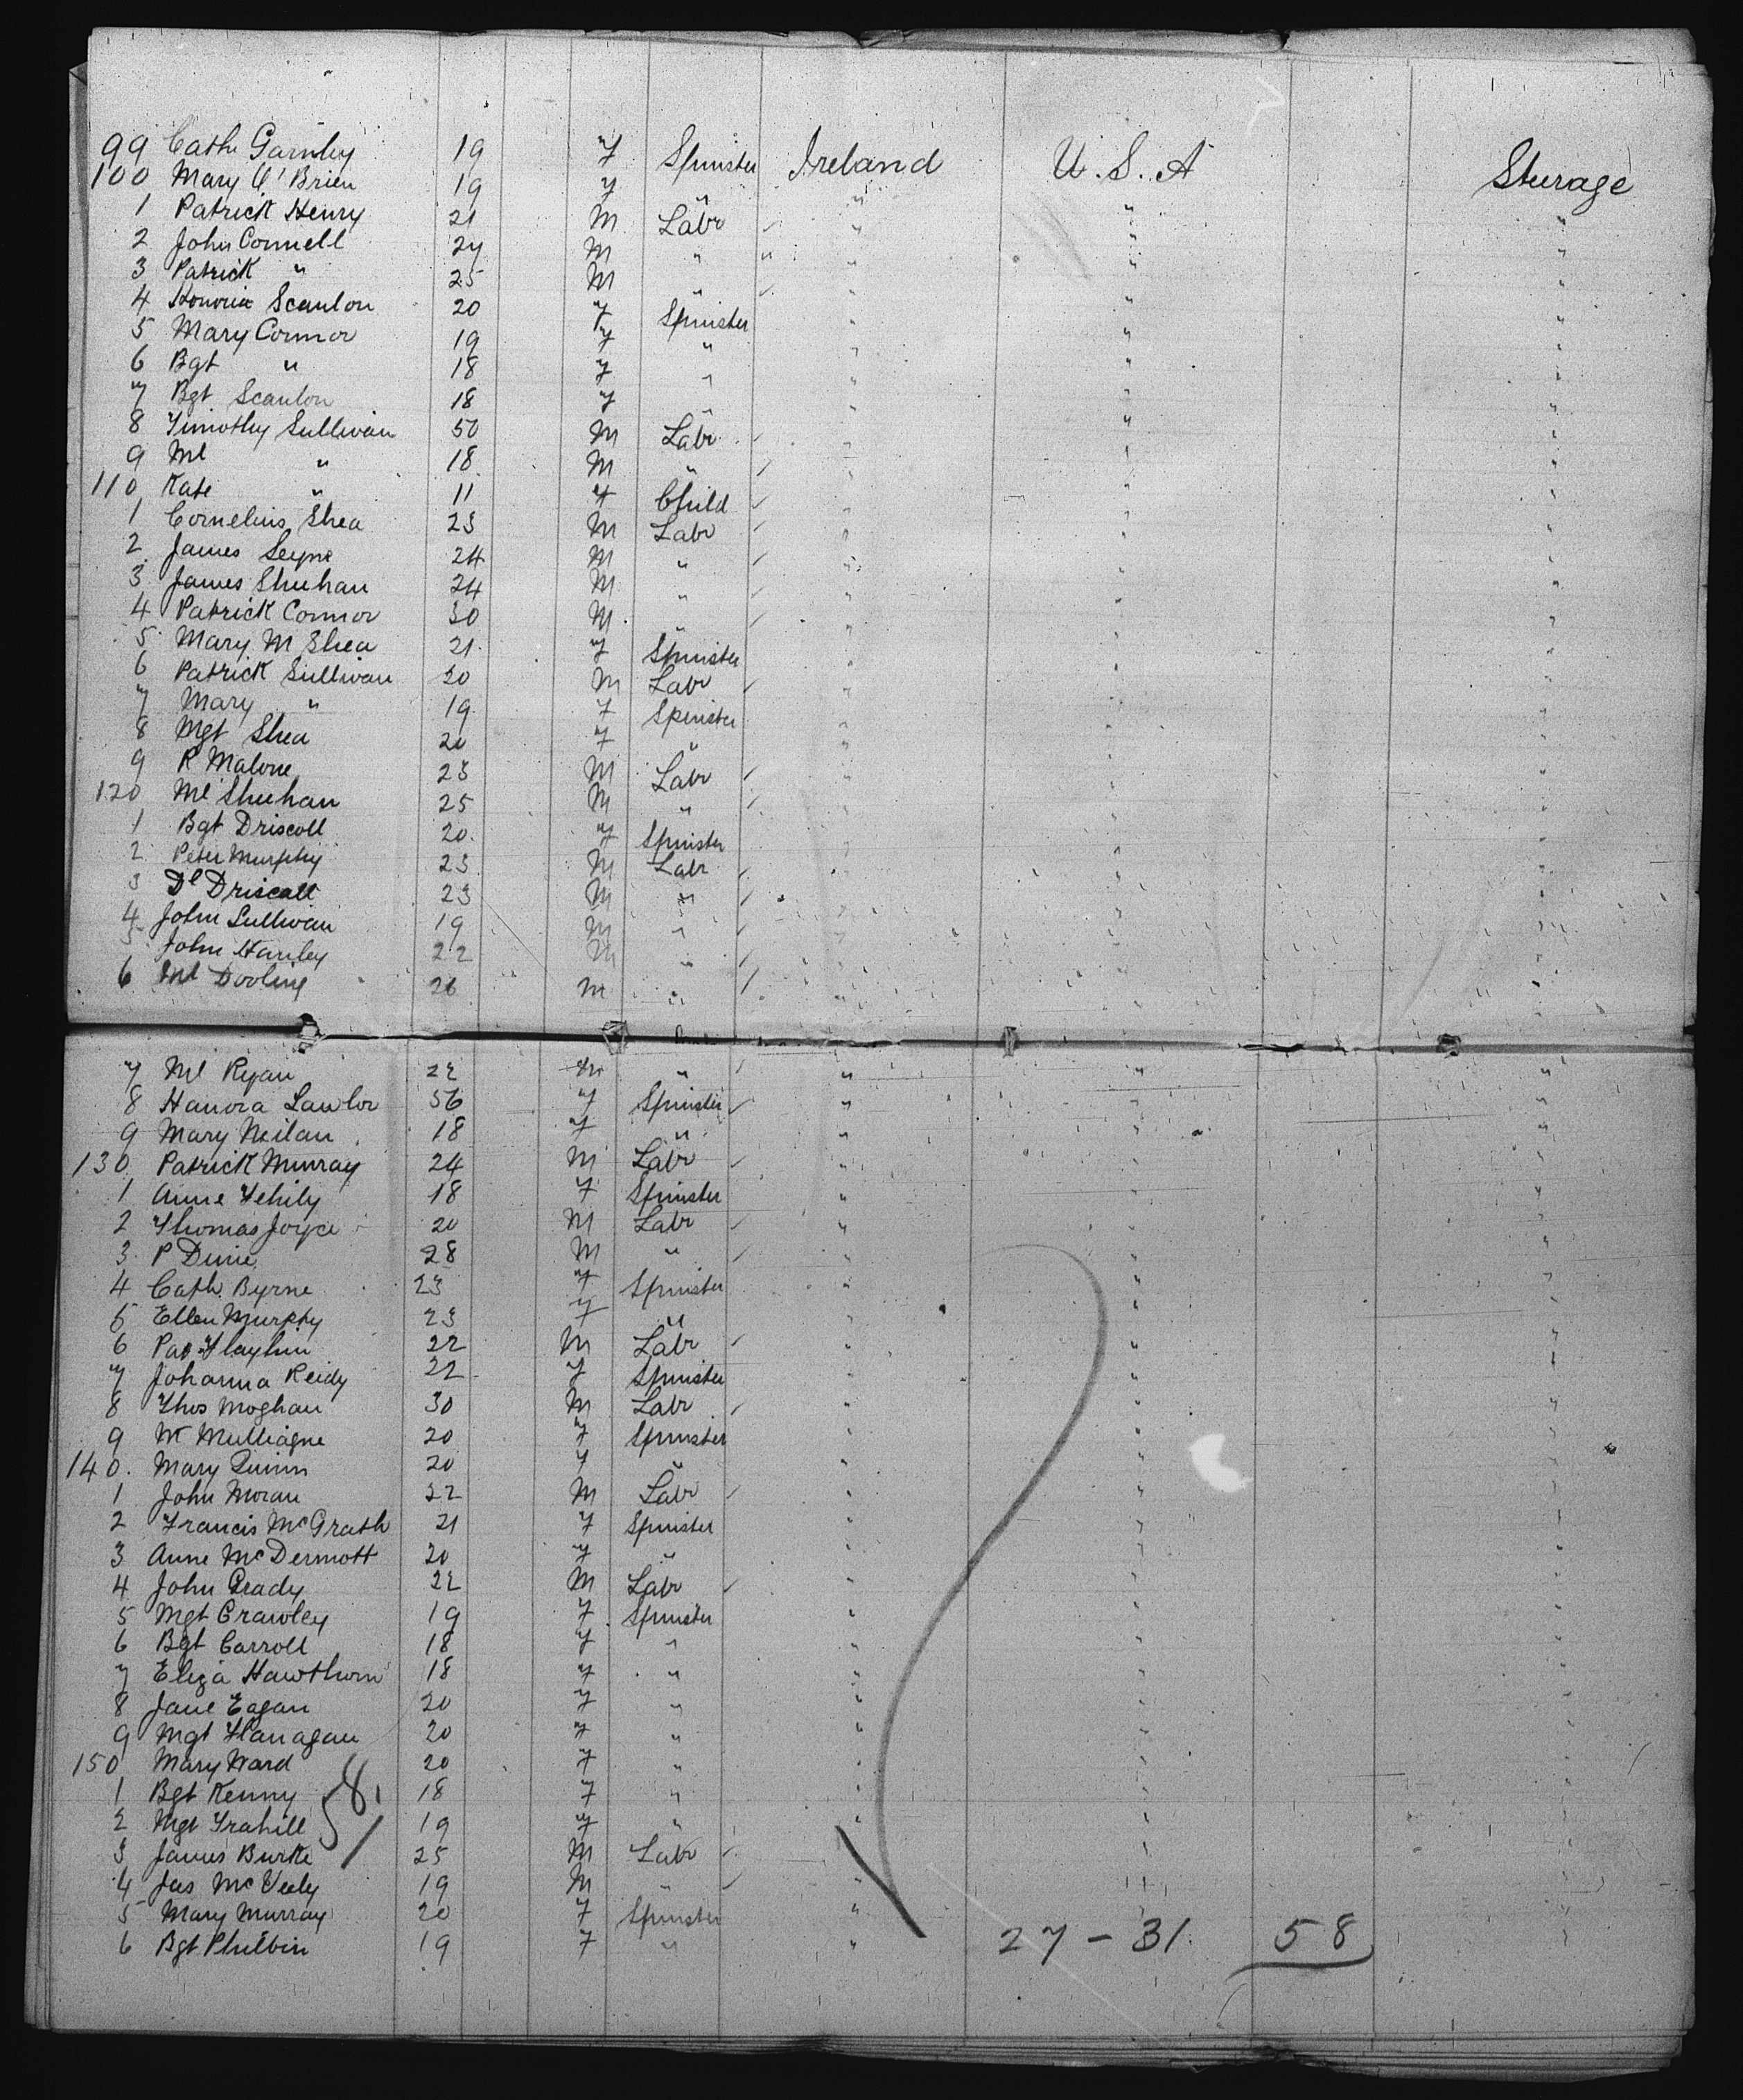 99 Cathe Garnley 19 f Spinster Ireland U.S.A Sturage
100 Mary O'Brien 19 f " " " "
1 Patrick Henry 21 M Labr " " "
2 John Connell 24 M " " " "
3 Patrick " 25 M " " " "
4 Honoria Scanlon 20 f Spinster " " "
5 Mary Connor 19 f " " " "
6 Bgt " 18 f " " " "
7 Bgt Scanlon 18 f " " " "
8 Timothy Sullivan 50 M Labr " " "
9 Ml " 18 M " " " "
110 Kate " 11 f Child " " "
1 Cornelius Shea 23 M Labr " " "
2 James 24 M " " " "
3 James Sheehan 24 M " " " "
4 Patrick Connor 30 M " " " "
5 Mary M Shea 21 f Spinster " " "
6 Patrick Sullivan 20 M Labr " " "
7 Mary " 19 f Spinster " " "
8 Mgt Shea 20 f " " " "
9 R Malone 23 M Labr " " "
120 Ml Sheehan 25 M " " " "
1 Bgt Driscoll 20 f Spinster " " "
2 Peter Murphy 23 M Labr " " "
3 Dl Driscoll 23 M " " " "
4 John Sullivan 19 M " " " "
5 John Hanley 22 M " " " "
6 Ml Dooling 26 M " " " "
7 Ml Ryan 22 M " " " "
8 Hanora Lawlor 56 f Spinster " " "
9 Mary Neilan 18 f " " " "
130 Patrick Murray 24 M Labr " " "
1 Anne Fehily 18 f Spinster " " "
2 Thomas Joyce 20 M Labr " " "
3 P Dunie 28 M " " " "
4 Cath Byrne 23 f Spinster " " "
5 Ellen Murphy 23 f " " " "
6 Pat Flaylin 22 M Labr " " "
7 Johanna Reidy 22 f Spinster " " "
8 Thos Moghan 30 M Labr " " "
9 W Mulliagne 20 f Spinster " " "
140 Mary Quinn 20 f " " " "
1 John Moran 22 M Labr " " "
2 Francis McGrath 21 f Spinster " " "
3 Anne McDermott 20 f " " " "
4 John Grady 22 M Labr " " "
5 Mgt Crawley 19 f Spinster " " "
6 Bgt Carroll 18 f " " " "
7 Eliza Hawthorn 18 f " " " "
8 Jane Eagan 20 f " " " "
9 Mgt Flanagan 20 f " " " "
150 Mary Ward 20 f " " " "
1 Bgt Kenny 58 18 f " " " "
2 Mgt Trahill 19 f " " " "
3 James Burke 25 M Labr " " "
4 Jas McVeely 19 M " " " "
5 Mary Murray 20 f Spinster " " "
6 Bgt Philbin 19 f " " 27 - 31 58